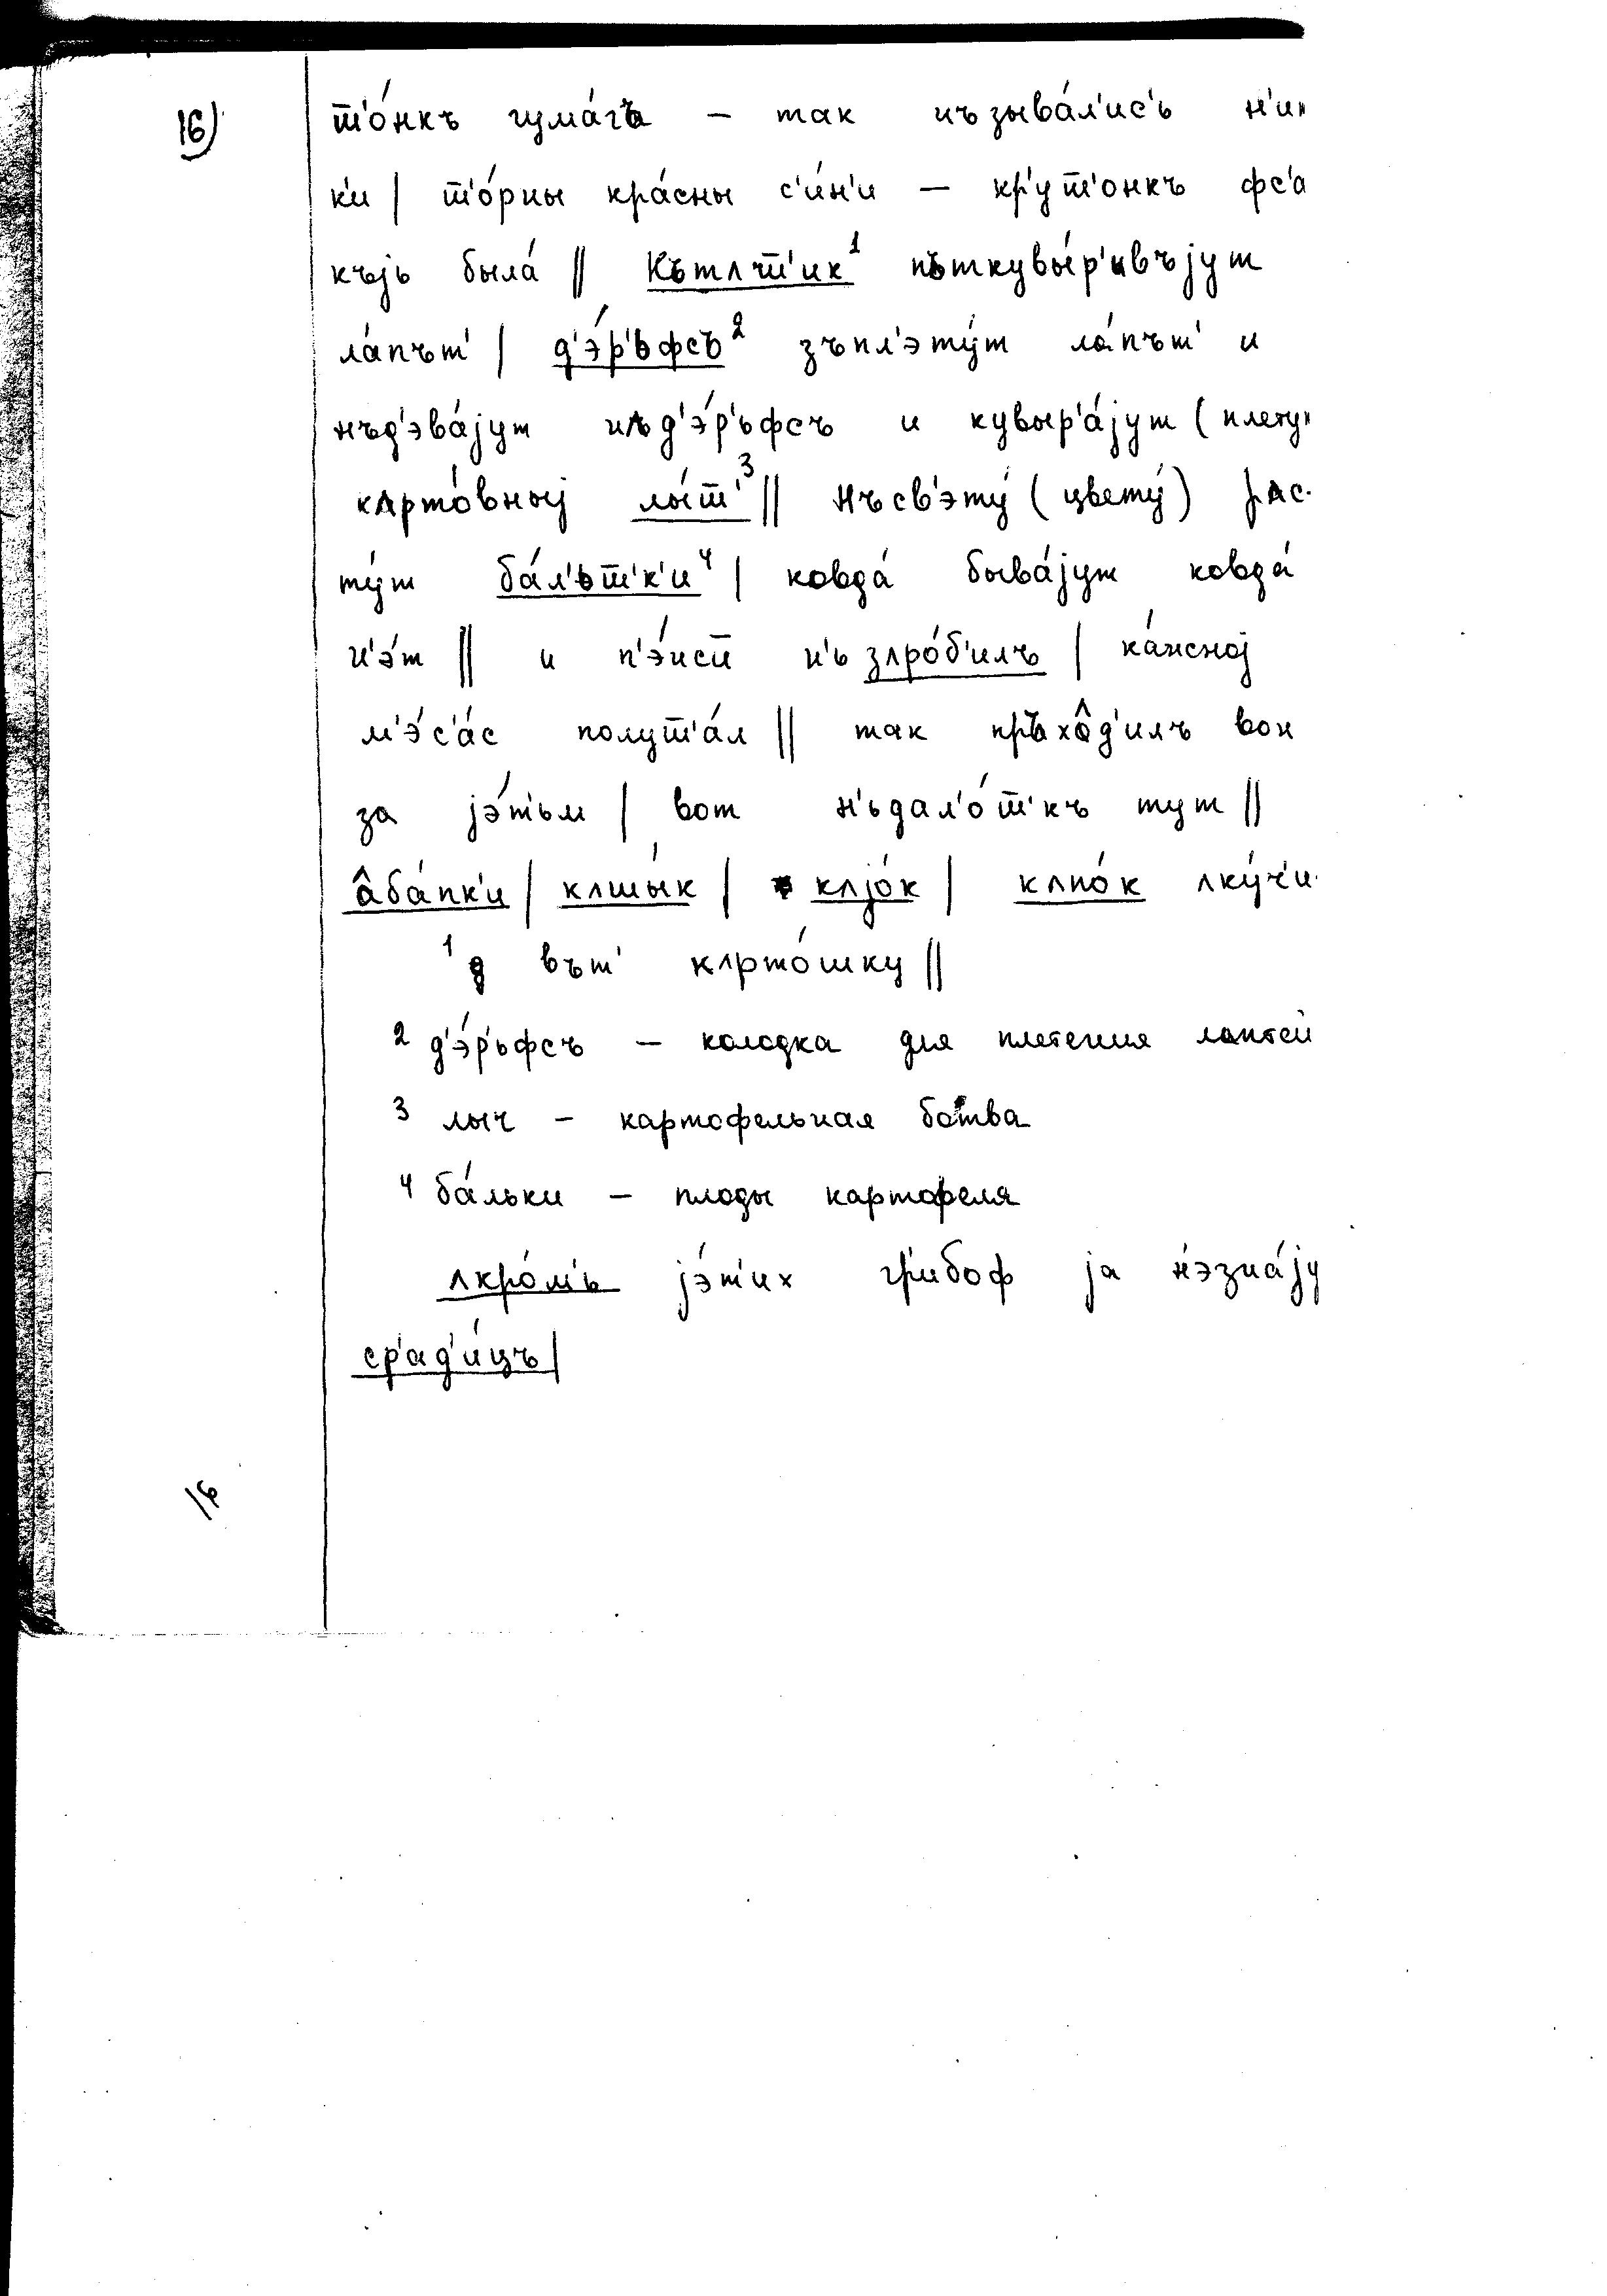 16)
т̅'о́нкъ гума́гъ – так нъзыва́л'ис'ь н'и
к'и | т̅'о́рны кра́сны с'и́н'и – кр'ут̅'онкъ фс'а
къjь была́ || Кътлт̅'ик¹ пъткувы́р'ивъjут
ла́път' | д'э́р'ьфсъ² зъпл'эту́т ла́път' и
нъд'эва́jут нъд'э́р'ьфсъ и кувыр'а́jут (плету
клрто́вноj лы́т̅'³ || Нъсв'эту́ (цвету́) рлс
ту́т ба́л'ьт̅'к'и⁴ | ковда́ быва́jут ковда́
н'э́т || и п'э́нсии н'ь злро́б'илъ | ка́жноj
м'э́с'а́с полут̅'а́л || так пръхо̂д'илъ вон
за jэ́тьм | вот н'ьдал'о́т̅'къ тут ||
а̂ба́пк'и | клшы́к | клjо́к | клпо́к лку́ч'и
¹ д вът' клрто́шку ||
² д'э́р'ьфсъ – колодка для плетения лаптей
³ лыч – картофельная ботва
⁴ ба́льки – плоды картофеля
лкро́м'ь jэ́т'их гр'ибоф jа н'эзна́jу
ср'ад'и́цъ |
16